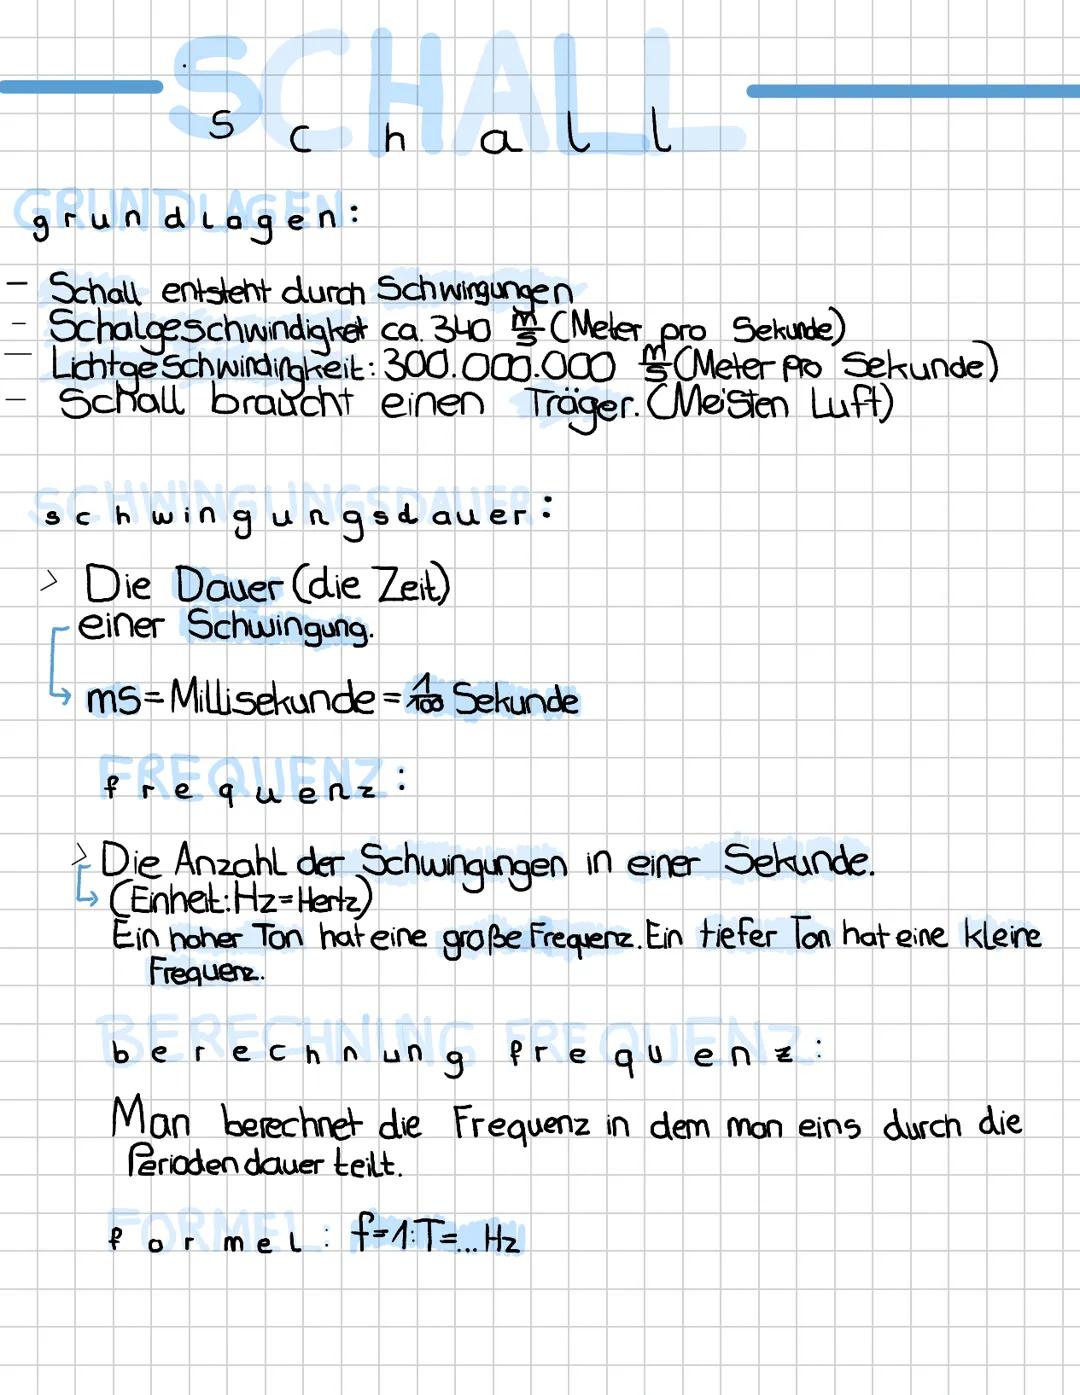 SCHALL
Schall
GRUNDLAGEN
grundlagen:
- Schall entsteht durch Schwingungen
- Schalgeschwindigket ca. 340 m/s (Meter pro Sekunde)
- Lichtgeschwindingkeit: 300.000.000 m/s (Meter pro Sekunde)
- Schall braucht einen Träger. (Meisten Luft)
SCHWINGUNGSDAUER
schwingungsdauer:
> Die Dauer (die Zeit)
einer Schwingung.
↳ ms = Millisekunde = 1/100 Sekunde
FREQUENZ
frequenz:
> Die Anzahl der Schwingungen in einer Sekunde.
↳ (Einheit: Hz = Hertz)
Ein hoher Ton hat eine große Frequenz. Ein tiefer Ton hat eine kleine
Frequenz.
BERECHNUNG FREQUENZ
berechnung frequenz:
Man berechnet die Frequenz in dem man eins durch die
Periodendauer teilt.
FORMEL
formel: f=1:T=... Hz